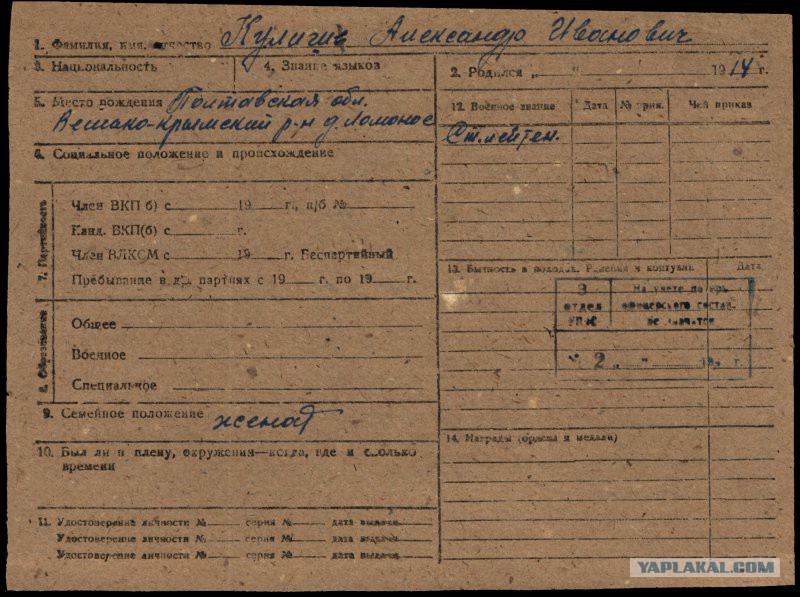 1. Фамилия, имя, отчество Кулигин Александр Иванович
3. Национальность
4. Знание языков
2. Родился „ “ 1914 г.
5. Место рождения Полтавская обл.
Вешако-крымский р-н д. Ломонос
6. Социальное положение и происхождение
7. Партийность
Член ВКП б) с 19 г., п/б №
Канд. ВКП(б) с г.
Член ВЛКСМ с 19 г. Беспартийный
Пребывание в др. партиях с 19 г. по 19 г.
8. Образование
Общее
Военное
Специальное
9. Семейное положение женат
10. Был ли в плену, окружении—когда, где и сколько
времени
11. Удостоверение личности № серия № дата выдачи
Удостоверение личности № серия № дата выдачи
Удостоверение личности № серия № дата выдачи
12. Военное звание Дата № прик. Чей приказ
Ст. лейтен.
13. Бытность в походах. Ранения и контузии Дата
3
отдел
УПК
На учете потерь
офицерского состава
не значится
2 „ “ 19 г.
14. Награды (ордена и медали)
YAPLAKAL.COM